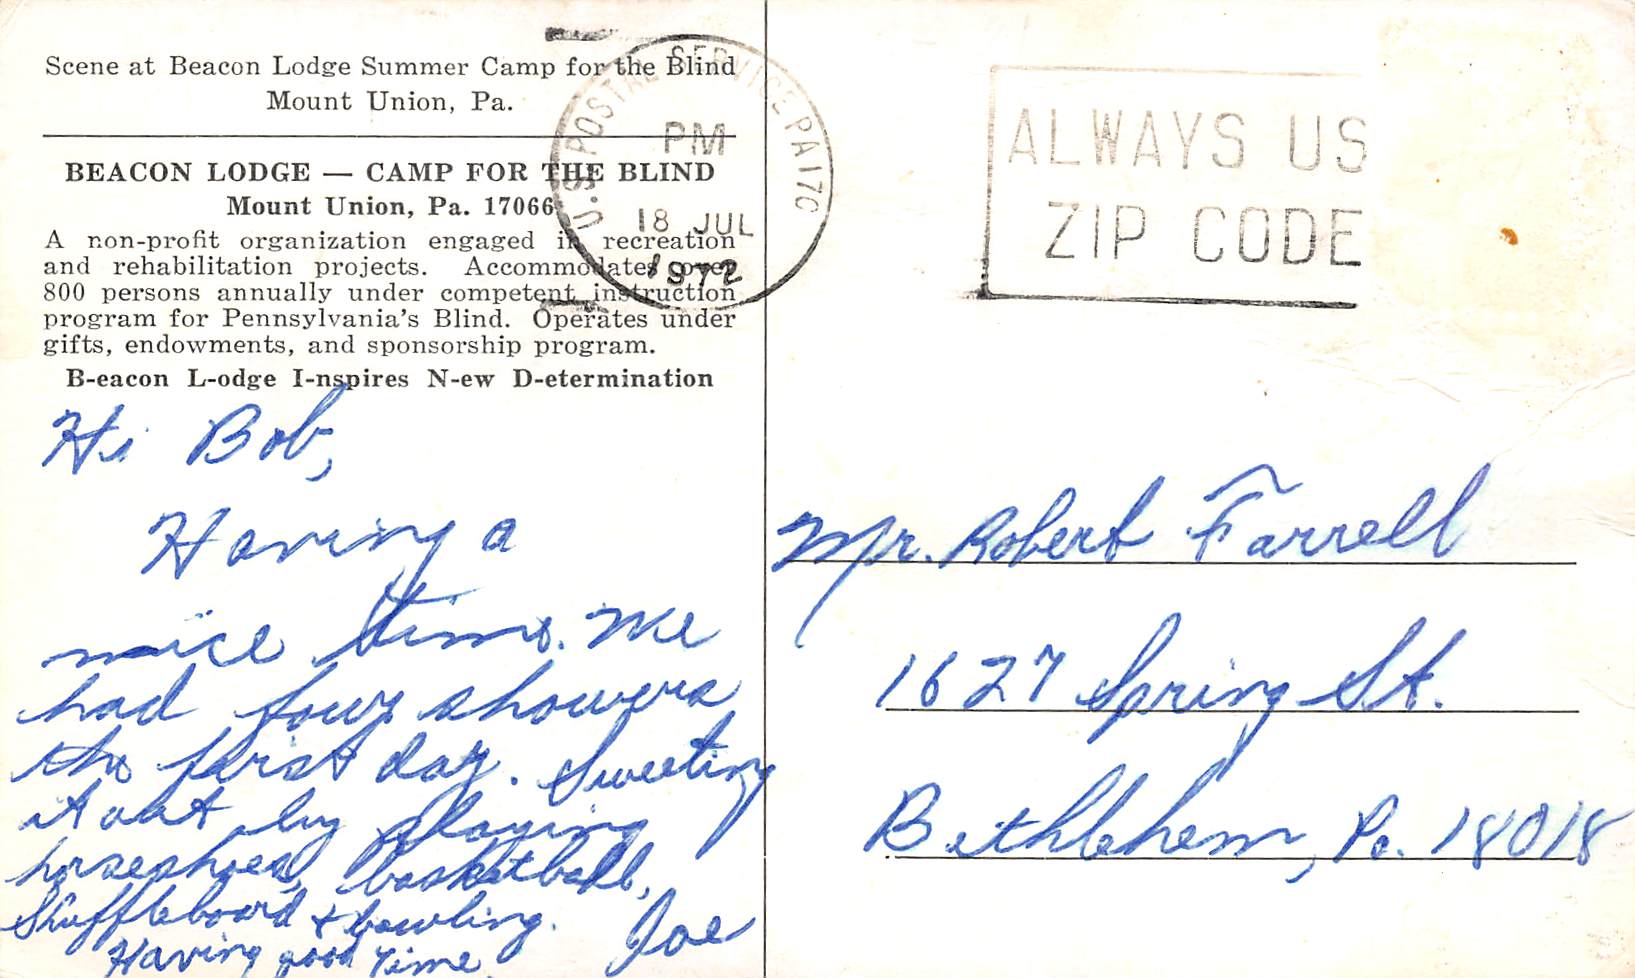 Scene at Beacon Lodge Summer Camp for the Blind
Mount Union, Pa.
BEACON LODGE — CAMP FOR THE BLIND
Mount Union, Pa. 17066
A non-profit organization engaged in recreation
and rehabilitation projects. Accommodates over
800 persons annually under competent instruction
program for Pennsylvania's Blind. Operates under
gifts, endowments, and sponsorship program.
B-eacon L-odge I-nspires N-ew D-etermination
U.S. POSTAL SERVICE PA 170
PM
18 JUL
1972
ALWAYS US
ZIP CODE
Hi Bob,
Having a
nice time. We
had four showers
the first day. Sweeting
it out by playing
horseshoes, basketball,
Shuffleboard & bowling.
Having good Time
Joe
Mr. Robert Farrell
1627 Spring St.
Bethlehem, Pa. 18018